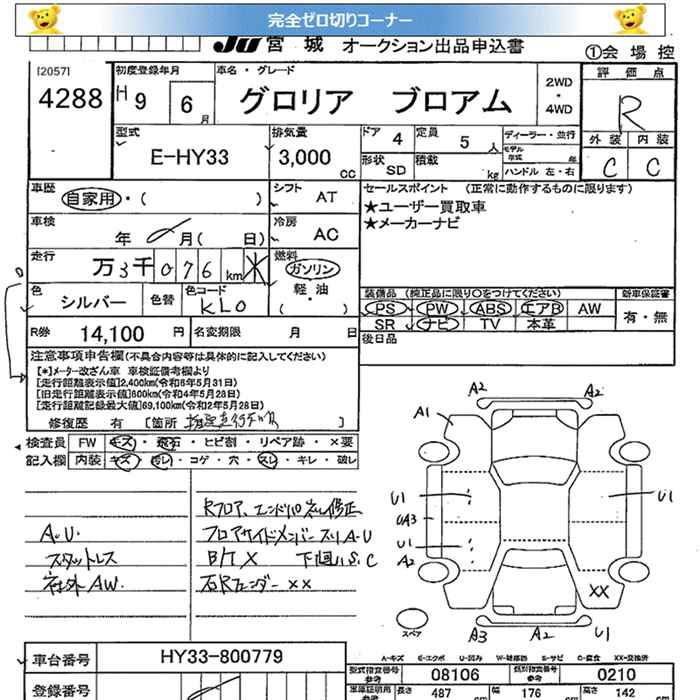 完全ゼロ切りコーナー
JU 宮城 オークション出品申込書
①会場控
[2057]
4288
初度登録年月
H9 6月
車名・グレード
グロリア ブロアム
2WD・4WD
評価点
R
外装 内装
C C
型式
E-HY33
排気量
3,000 cc
ドア 4
定員 5人
形状 SD
積載 kg
ディーラー・並行
モデル年式 年
ハンドル 左・右
車歴
自家用・( )
シフト AT
車検
年 月( 日)
冷房 AC
走行
万3千076km *
燃料
ガソリン
軽・油
( )
色 シルバー
色替
色コード
KL0
R券 14,100 円
名変期限 月 日
セールスポイント (正常に動作するものに限ります)
★ユーザー買取車
★メーカーナビ
装備品 (純正品に限り○をつけてください)
PS PW ABS エアB AW
SR ナビ TV 本革
新車保証書
有・無
後日品
注意事項申告欄(不具合内容等は具体的に記入してください)
[*]メーター改ざん車 車検証備考欄より
[走行距離表示値]2,400km(令和6年5月31日)
[旧走行距離表示値]600km(令和4年5月28日)
[走行距離記録最大値]69,100km(令和2年5月28日)
修復歴 有 [箇所 ]
検査員 FW キズ・飛石・ヒビ割・リペア跡・×要
記入欄 内装 キズ・汚レ・コゲ・穴・スレ・キレ・破レ
A.U.
スタットレス
社外AW.
Rフロア、エンドパネル修正
フロアサイドメンバースリA・U
B/T X 下回りS.C
右Rフェンダー ××
A2 A2
A1
U1 U1
UA3
U1
A2
XX
スペア
A3 A2 U1
A-キズ E-エクボ U-凹み W-補修跡 S-サビ C-腐食 XX-交換済
車台番号 HY33-800779
登録番号
型式指定番号 参考 08106
類別指定番号 参考 0210
車車証明用 参考 長さ 487 cm 幅 176 cm 高さ 142 cm